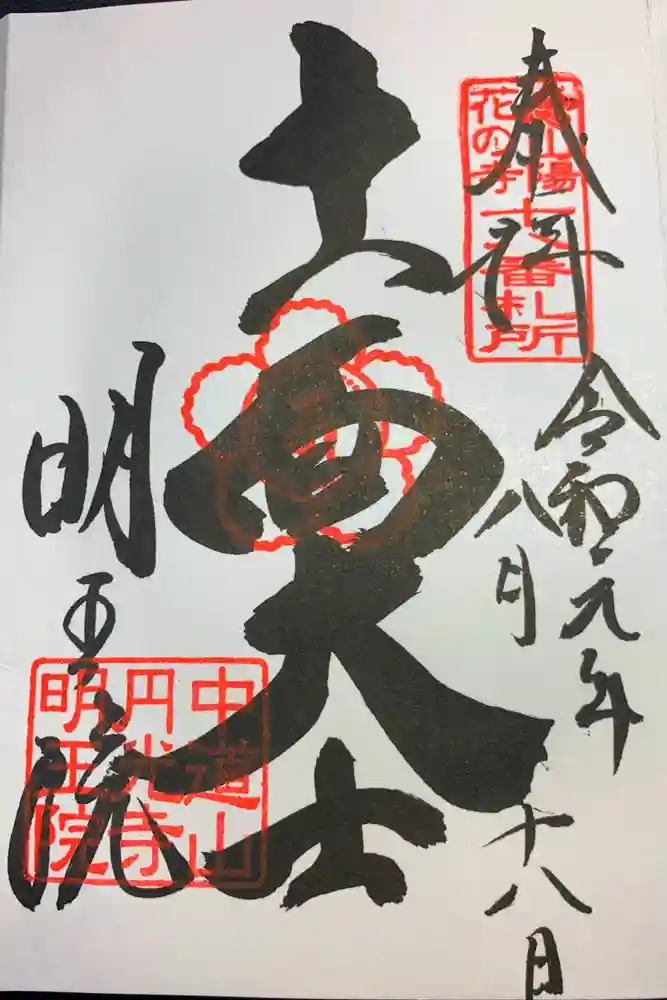 奉拝
山陽
花の寺
番札所
令和元年
八月
十八日
十一面大士
明王院
中道山
円光寺
明王院